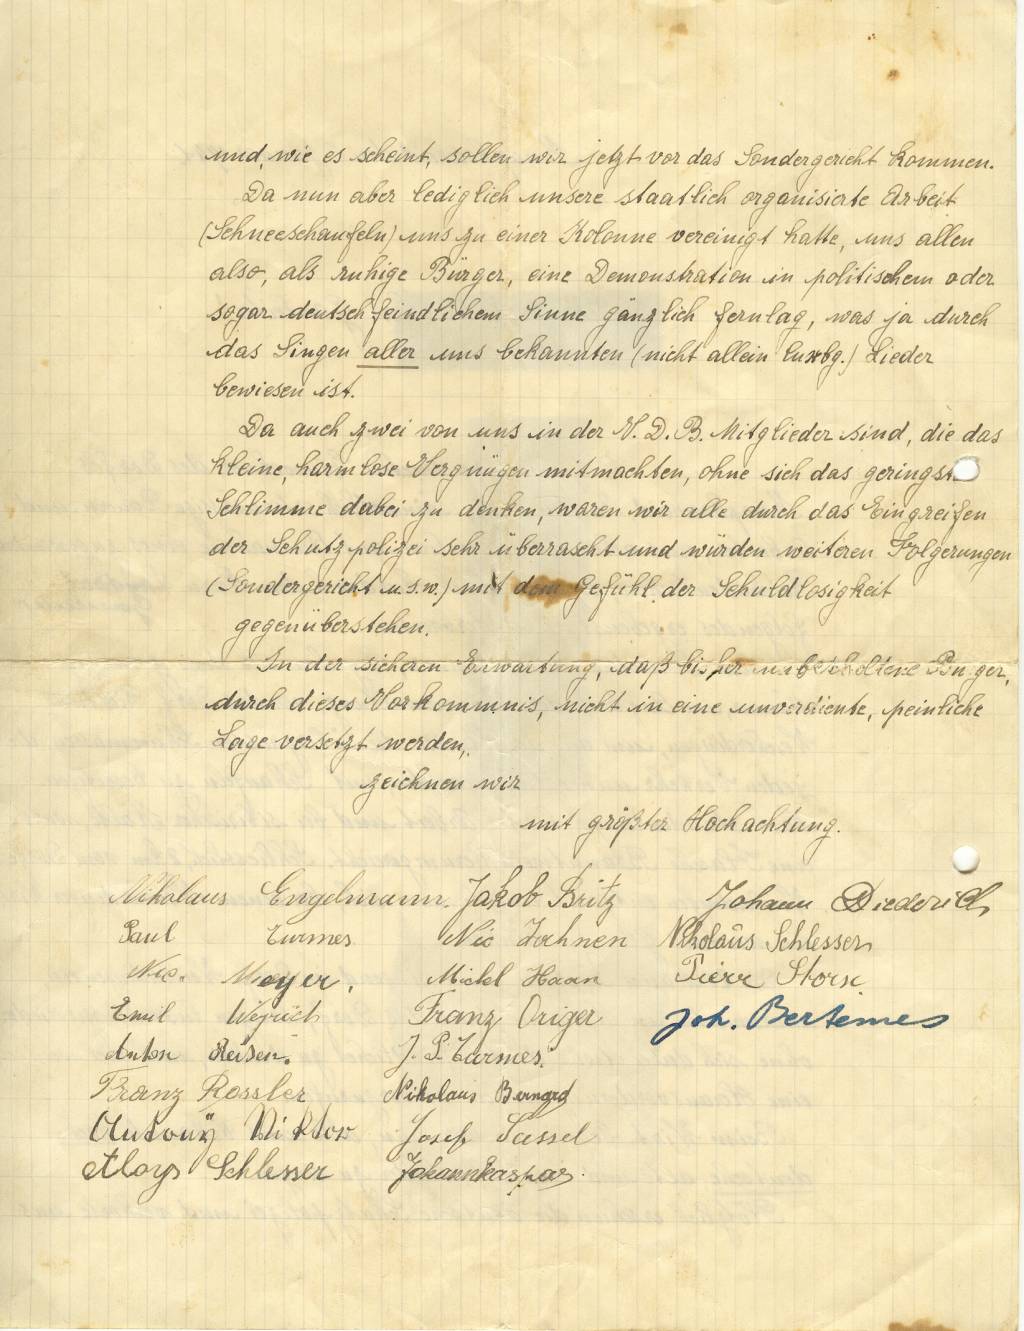 und, wie es scheint, sollen wir jetzt vor das Sondergericht kommen.
Da nun aber lediglich unsere staatlich organisierte Arbeit
(Schneeschaufeln) uns zu einer Kolonne vereinigt hatte, uns allen
also, als ruhige Bürger, eine Demonstration in politischem oder
sogar deutsch-feindlichem Sinne gänzlich fernlag, was ja durch
das Singen aller uns bekannten (nicht allein luxbg.) Lieder
bewiesen ist.
Da auch zwei von uns in der V. D. B. Mitglieder sind, die das
kleine, harmlose Vergnügen mitmachten, ohne sich das geringste
Schlimme dabei zu denken, waren wir alle durch das Eingreifen
der Schutzpolizei sehr überrascht und würden weiteren Folgerungen
(Sondergericht u.s.w.) mit dem Gefühl der Schuldlosigkeit
gegenüberstehen.
In der sicheren Erwartung, daß bisher unbescholtene Bürger,
durch dieses Vorkommnis, nicht in eine unverdiente, peinliche
Lage versetzt werden,
zeichnen wir
mit größter Hochachtung.
Nikolaus Engelmann. Jakob Britz Johann Diederich
Paul Turmes Nic Jahnen Nikolaus Schlesser
Nic. Meyer. Michel Haan Pierr Storn
Emil Weyrich Franz Origer Joh. Bertemes
Anton Reisen. J. P. Turmes.
Franz Rossler Nikolaus Bernard
Antony Viktor Josef Sassel
Aloys Schlesser Johann Kaspar.